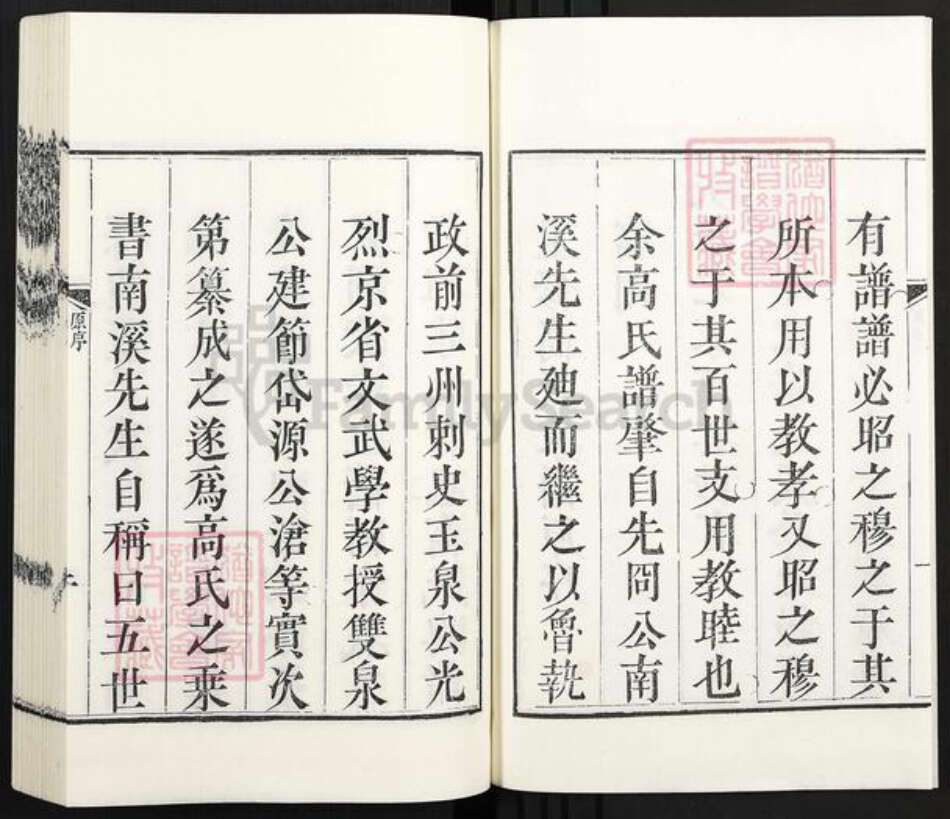 有譜譜必昭之穆之于其
所本用以教孝又昭之穆
之于其百世支用教睦也
余高氏譜肇自先罔公南
溪先生廸而繼之以魯執
政前三州刺史玉泉公光
烈京省文武學教授雙泉
公建節岱源公滄等實次
第纂成之遂爲高氏之乘
書南溪先生自稱曰五世
原序
FamilySearch